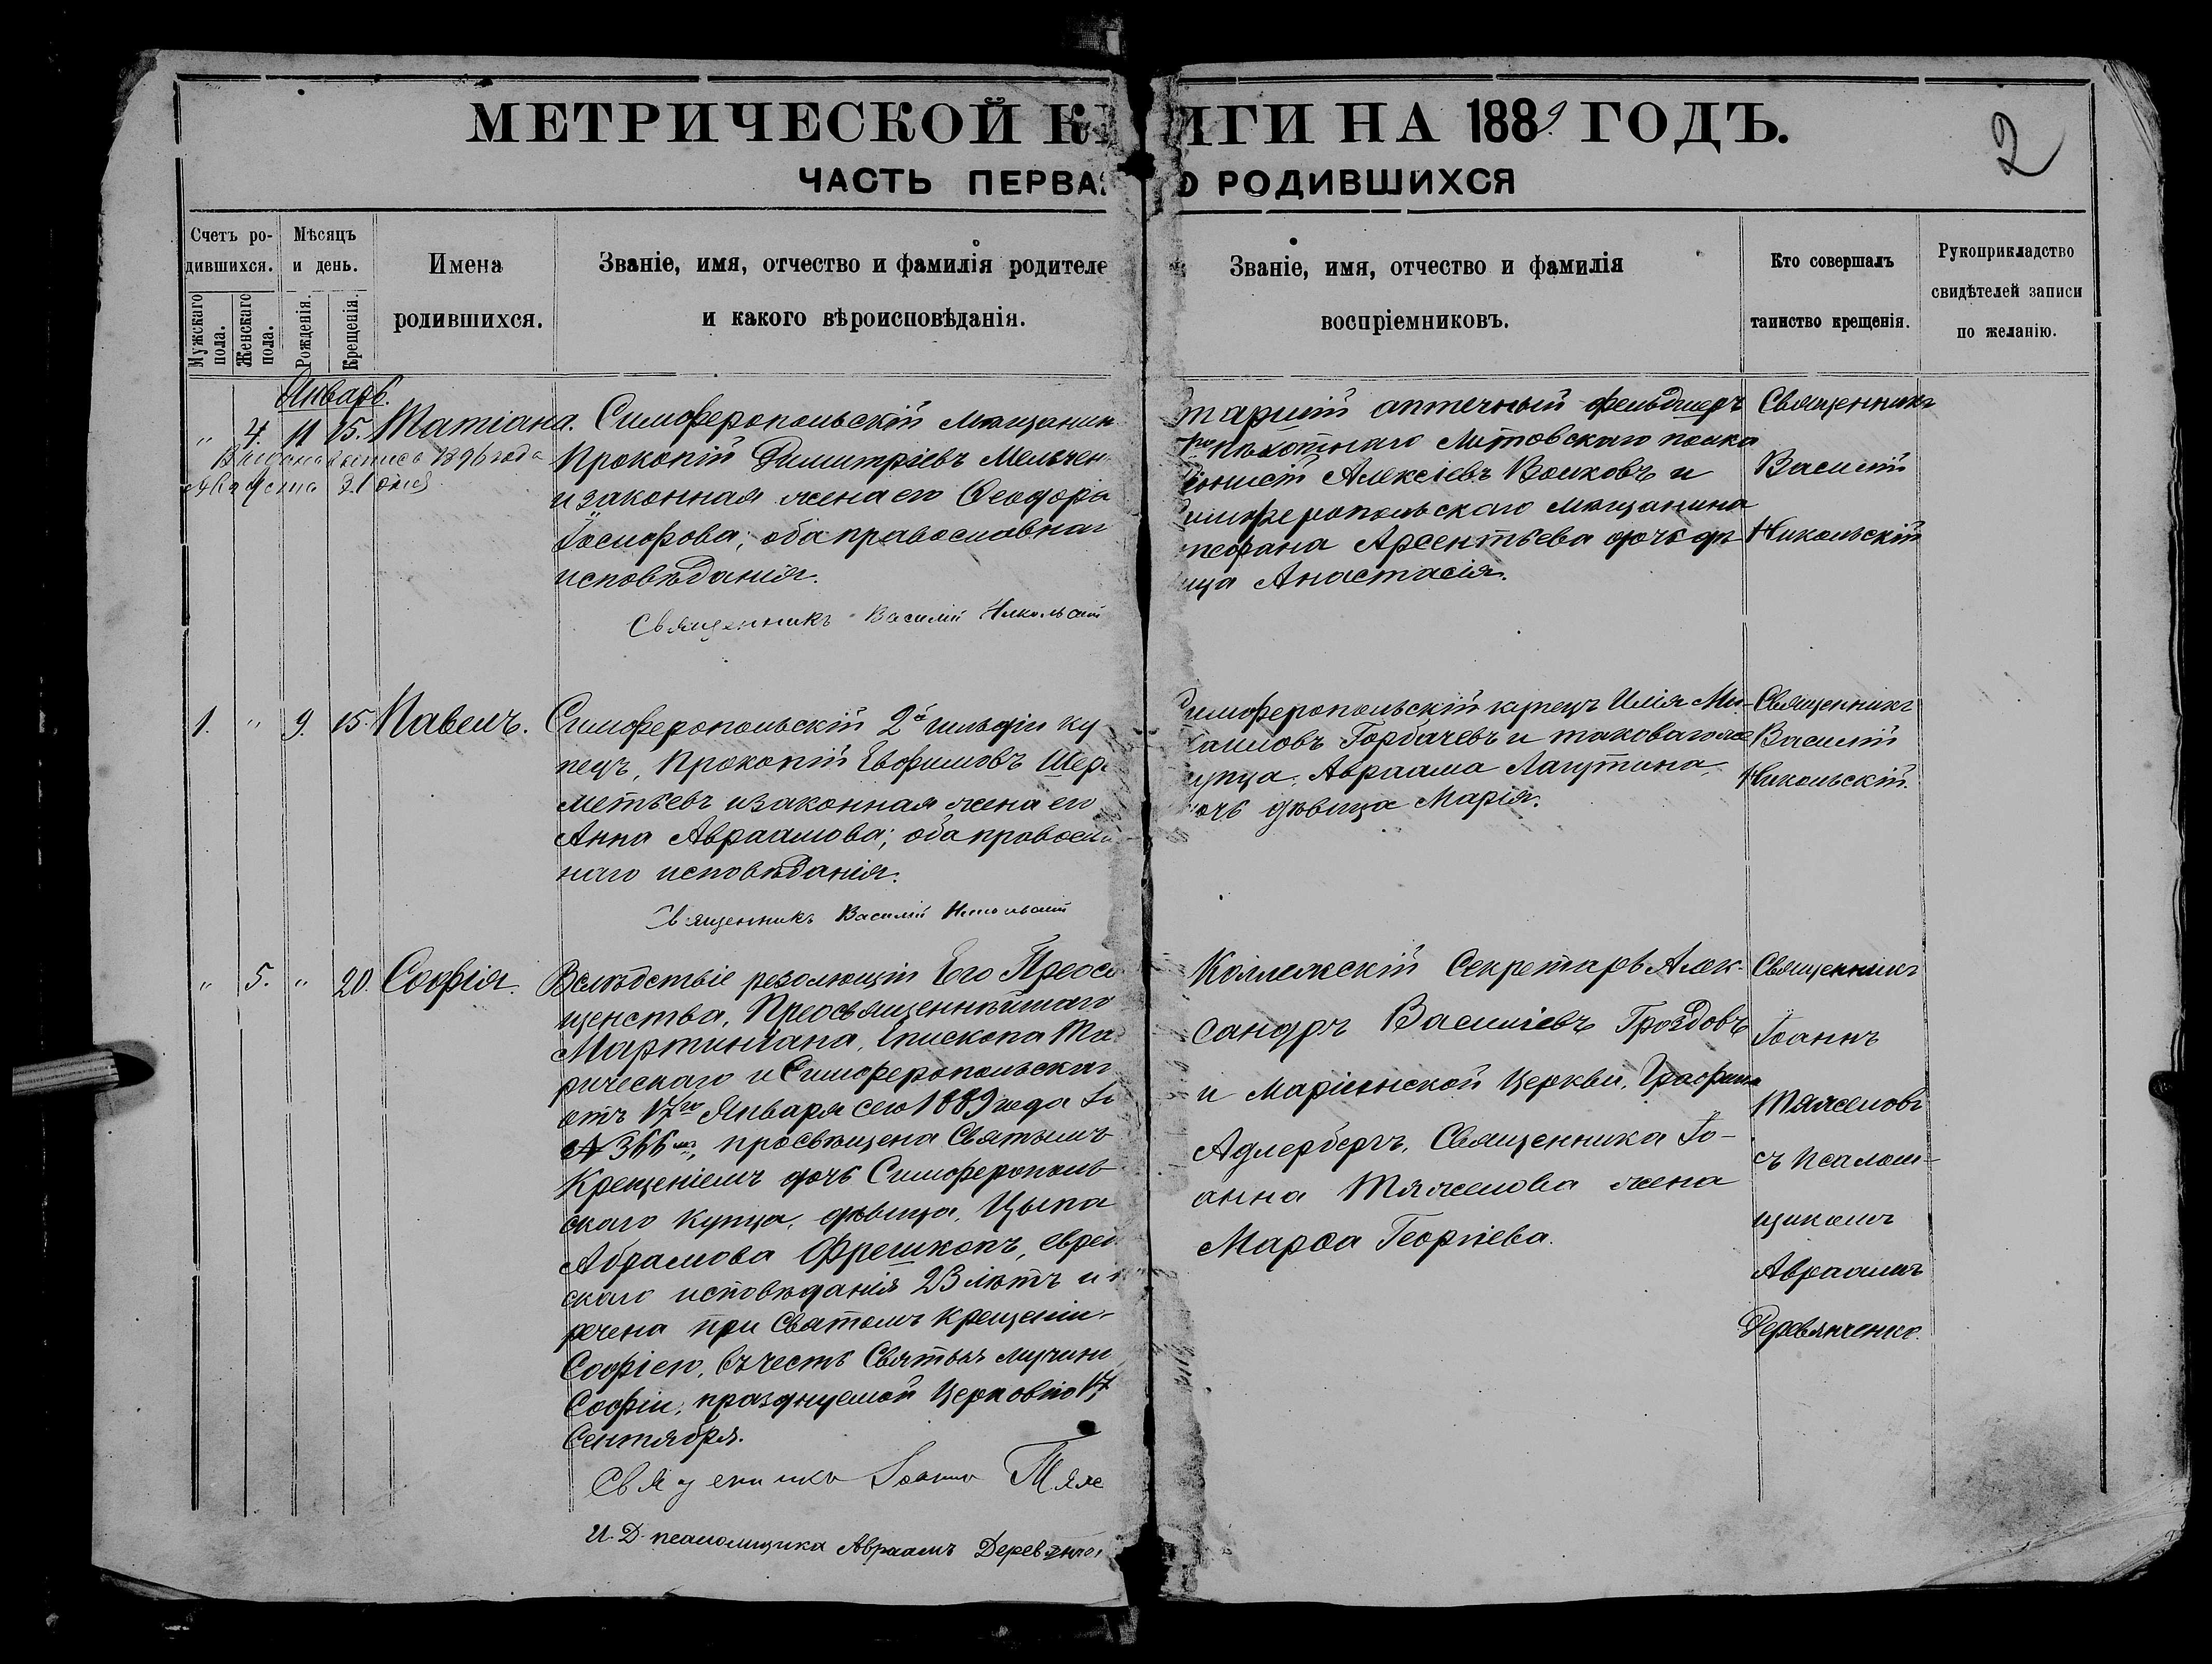 МЕТРИЧЕСКОЙ КНИГИ НА 1889 ГОДЪ.
2
ЧАСТЬ ПЕРВАЯ О РОДИВШИХСЯ
Счетъ родившихся.
Мужскаго пола.
Женскаго пола.
Мѣсяцъ и день.
Рожденія.
Крещенія.
Имена
родившихся.
Званіе, имя, отчество и фамилія родителе
и какого вѣроисповѣданія.
Званіе, имя, отчество и фамилія
воспріемниковъ.
Кто совершалъ
таинство крещенія.
Рукоприкладство
свидѣтелей записи
по желанію.
Январь.
" 4. 11 15. Татіана.
Выдана выпись 1896 года
Августа 21 дня
Симферопольскій мѣщанин
Прокопій Димитріевъ Мельчен
и законная жена его Ѳеодора
Іосифова; оба православнаг
исповѣданія.
Священникъ Василій Никольскій
таршій аптечный фельдшеръ
пѣхотнаго Литовскаго полка
Алексіевъ Волковъ и
имферопольскаго мѣщанина
тефана Арсентьева дочь дѣ
ица Анастасія.
Священникъ
Василій
Никольскій
1. " 9. 15. Павелъ.
Симферопольскій 2й гильдіи ку
пецъ, Прокопій Евфимовъ Шере
метьевъ и законная жена его
Анна Авраамова; оба правосла
наго исповѣданія.
Священникъ Василій Никольскій
имферопольскій купецъ Илія Ми-
хаиловъ Горбачевъ и таковагоже
купца, Авраама Лагутина,
дочь дѣвица Марія.
Священникъ
Василій
Никольскій.
" 5. " 20. Софія.
Вслѣдствіе резолюціи Его Преосв
щенства, Преосвященнѣйшаго
Мартиніана, Епископа Та
рическаго и Симферопольскаг
отъ 17го Января сего 1889 года за
№ 366мъ, просвѣщена Святымъ
Крещеніемъ дочь Симферополь
скаго купца, дѣвица, Цыпа
Абрамова Фрешкопъ, еврей
скаго исповѣданія 23 лѣтъ и н
речена при Святомъ Крещеніи
Софіею, въ честь Святыя мучени
Софіи, празднуемой Церковію 17
Сентября.
Священникъ Іоаннъ Тяже
И. Д. псаломщика Авраамъ Деревянчен
Коллежскій Секретарь Алек-
сандръ Василіевъ Гроздовъ
и Маріинской Церкви, Графини
Адлербергъ, Священника Іо-
анна Тяжелова жена
Марѳа Георгіева.
Священникъ
Іоаннъ
Тяжеловъ
съ псалом-
щикомъ
Авраамъ
Деревянченко.